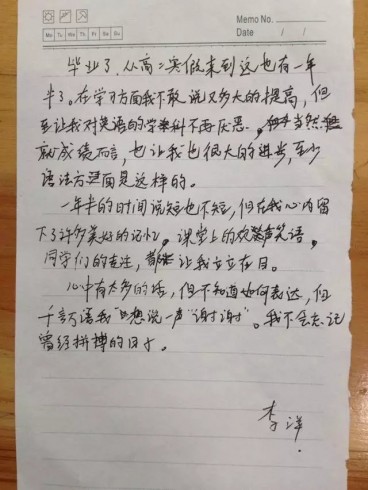 Memo No.
Mo Tu We Th Fr Sa Su
Date / /
毕业了,从高二寒假来到这也有一年
半了。在学习方面我不敢说又多大的提高,但
至让我对英语的学科不再厌恶。当然
就成绩而言,也让我也很大的进步,至少
语法方面是这样的。
一年半的时间说短也不短,但在我心内留
下了许多美好的记忆,课堂上的欢声笑语,
同学们的专注,都让我立立在目。
心中有太多的话,但不知道如何表达,但
千言万语我只想说一声"谢谢"。我不会忘记
曾经拼搏的日子。
李洋